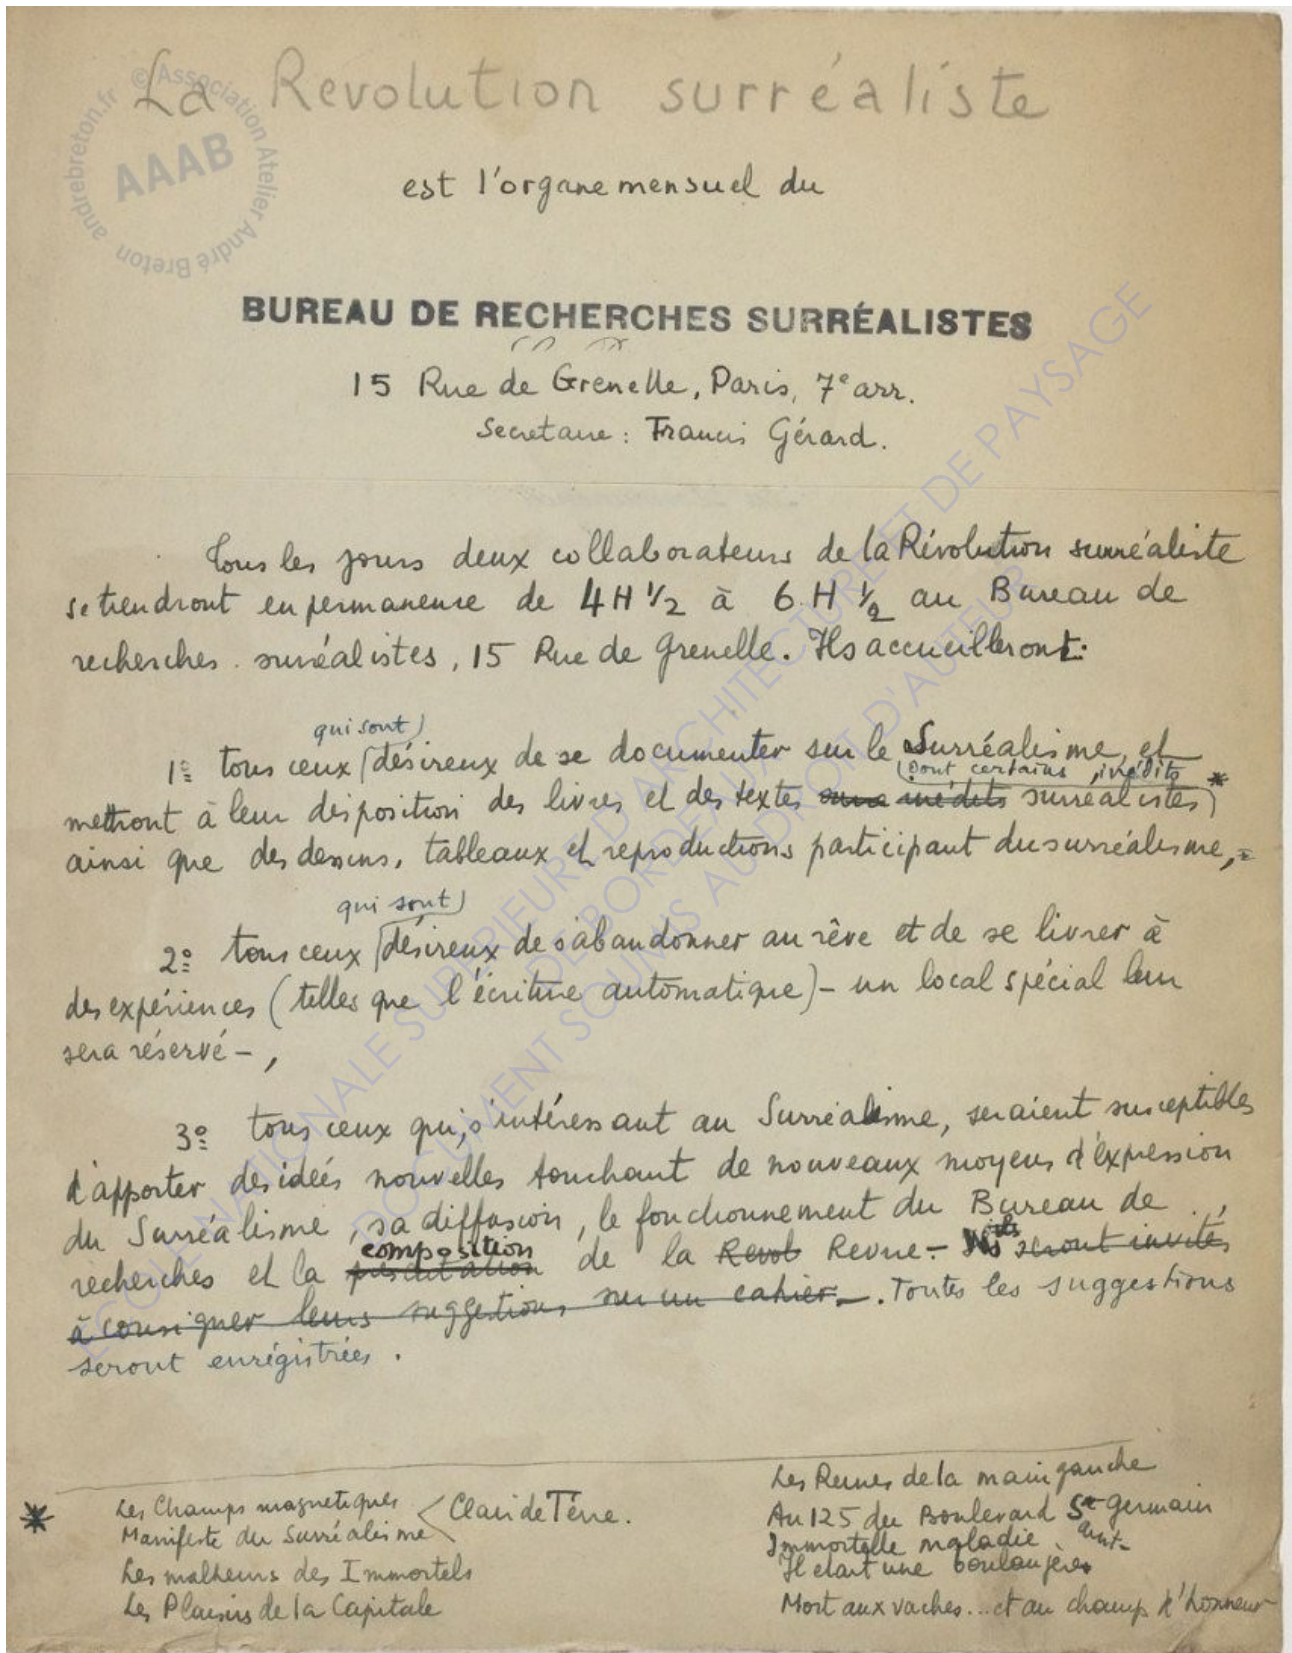 La Revolution surréaliste
est l'organe mensuel du
BUREAU DE RECHERCHES SURRÉALISTES
15 Rue de Grenelle, Paris, 7e arr.
Secretaire : Francis Gérard.
Tous les jours deux collaborateurs de la Révolution surréaliste
se tiendront en permanence de 4H 1/2 à 6 H 1/2 au Bureau de
recherches surréalistes, 15 Rue de Grenelle. Ils accueilleront:
qui sont
1º tous ceux désireux de se documenter sur le Surréalisme, et
dont certains inédits *
mettront à leur disposition des livres et des textes inédits surréalistes
ainsi que des dessins, tableaux et reproductions participant du surréalisme,-
qui sont
2º tous ceux désireux de s'abandonner au rêve et de se livrer à
des expériences (telles que l'écriture automatique) - un local spécial leur
sera réservé - ,
3º tous ceux qui, s'intéressant au Surréalisme, seraient susceptibles
d'apporter des idées nouvelles touchant de nouveaux moyens d'expression
du Surréalisme, sa diffusion, le fonctionnement du Bureau de
composition ils
recherches et la de la Revol Revue. - seront invités
à consigner leurs suggestions sur un cahier. - . Toutes les suggestions
seront enrégistrées .
* Les Champs magnetiques < Clair de Terre.
Manifeste du Surréalisme
Les malheurs des Immortels
Les Plaisirs de la Capitale
Les Reines de la main gauche
Au 125 du Boulevard St Germain
Immortelle maladie
Il etait une boulangère
Mort aux vaches ... et au champ d'honneur
© Association Atelier André Breton andrebreton.fr
AAAB
ÉCOLE NATIONALE SUPÉRIEURE D'ARCHITECTURE ET DE PAYSAGE
DE BORDEAUX
DOCUMENT SOUMIS AU DROIT D'AUTEUR